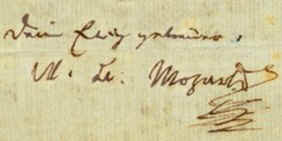 Dein Ewig getreuer.
W. A. Mozart